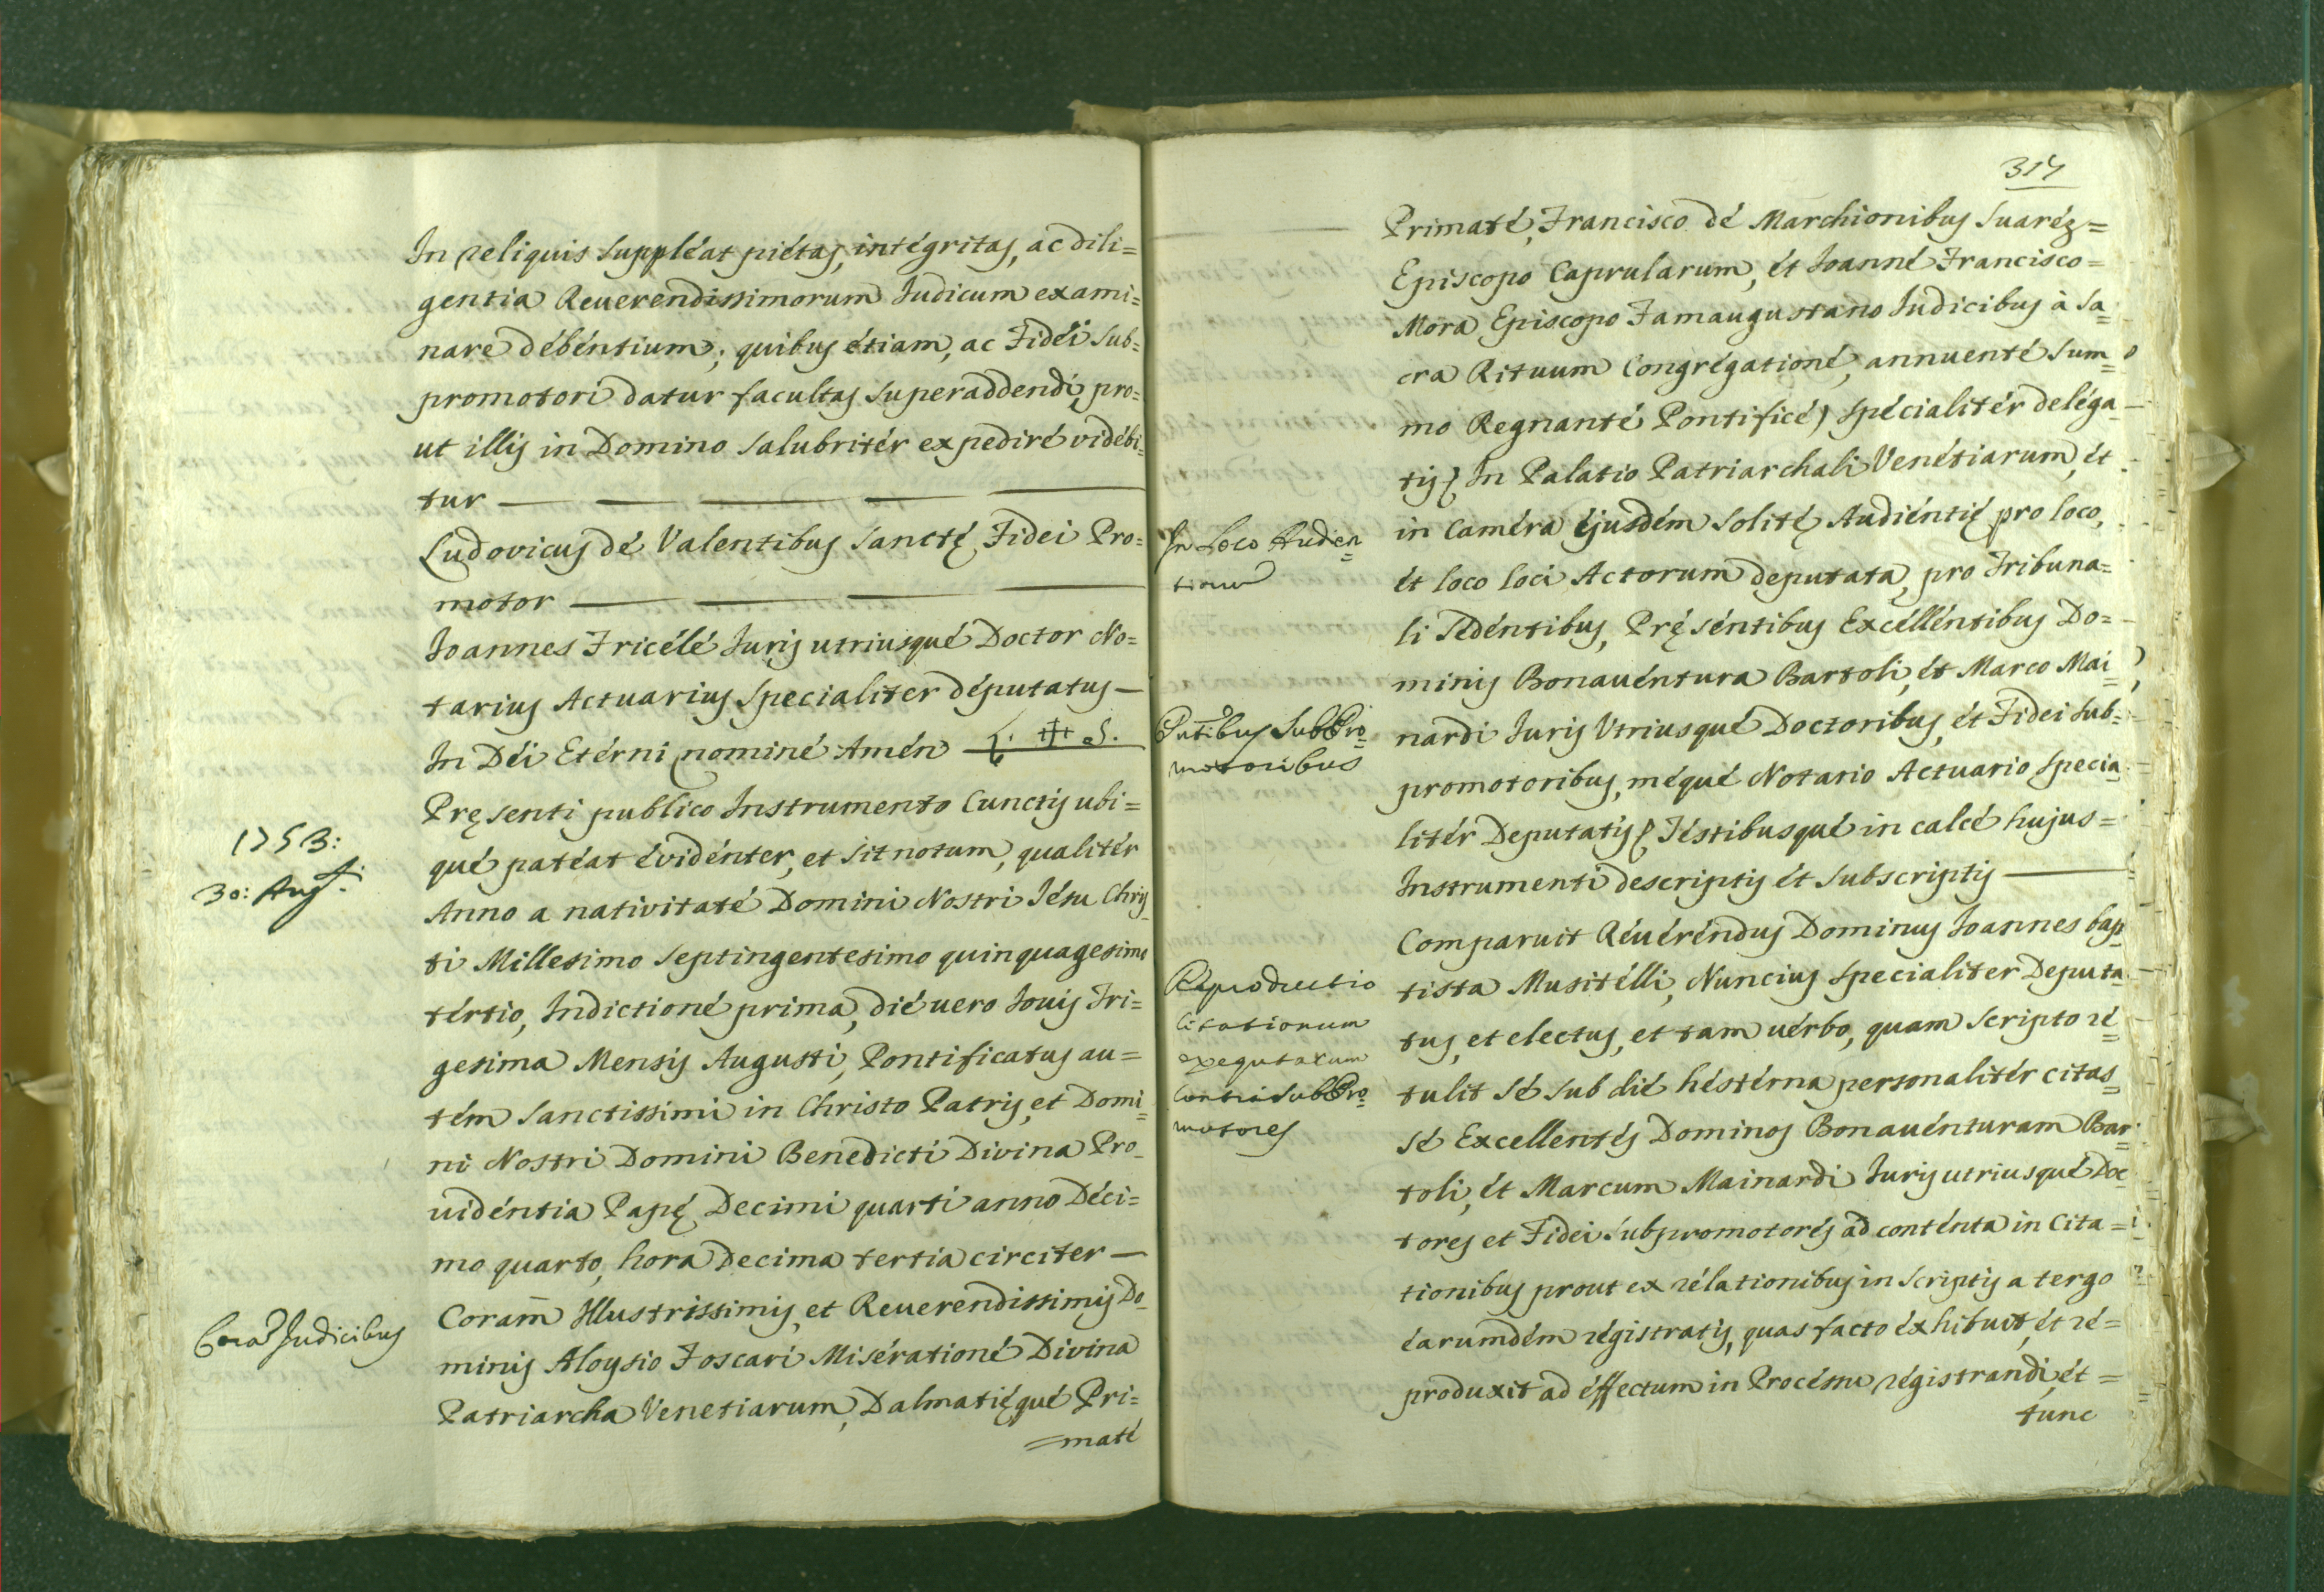 In reliquis suppléat piétas, intégritas, ac dili=
gentia Reuerendissimorum Iudicum exami=
nare débéntium; quibus étiam, ac Fidéi sub=
promotori datur facultas superaddendi, pro=
ut illis in Domino salubritér expediré vidébi=
tur
Ludovicus dé Valentibus Sanctę Fidei Pro=
motor
Ioannes Fricélé Iuris utriusqué Doctor No=
tarius Actuarius specialiter députatus
In Déi Etérni nominé Amén L. ‡ S.
Pręsenti publico Instrumento Cunctis ubi=
1753:
qué patéat évidénter, et sit notum, qualitér
30: Aug.ti
Anno a nativitaté Domini Nostri Iésu Chris
ti Millesimo septingentesimo quinquagesimo
tértio, Indictioné prima, dié uero Iouis Tri=
gesima Mensis Augusti, Pontificatus au=
tém Sanctissimi in Christo Patris, et Domi=
ni Nostri Domini Benedicti Divina Pro=
uidéntia Papę Decimi quarti anno Déci=
mo quarto, hora Decima tertia circiter
Cora Iudicibus
Coram Illustrissimis, et Reuerendissimis Do=
minis Aloysio Foscari Misérationé Divina
Patriarcha Venetiarum, Dalmatięqué Pri=
=maté
317
Primaté, Francisco dé Marchionibus Suaréz=
Episcopo Caprularum, ét Ioanné Francisco=
Mora Episcopo Famaugustano Iudicibus à Sa=
cra Rituum Congrégationé, annuenté Sum=
mo Regnanté Pontificé) spécialitér deléga
tis, In Palatio Patriarchali Venétiarum, ét
In Loco Audien=
tiarum
in Caméra éjusdém solitę Audiéntię pro loco,
ét loco loci Actorum deputata, pro Tribuna=
li sedéntibus, Pręséntibus Excélléntibus Do=
minis Bonauéntura Bartoli, ét Marco Mai=
Pntibus SubPro=
motoribus
nardi Iuris Vtriusqué Doctoribus, ét Fidei sub=
promotoribus, méqué Notario Actuario specia
litér Deputatis, Téstibusqué in calcé hujus=
Instrumenti descriptis ét subscriptis
Comparuit Réuéréndus Dominus Ioannes bap
Réproductio
Citationum
exequtarum
Contra SubPro=
motores
tista Musitélli, Nuncius specialiter Deputa
tus, et electus, et tam uérbo, quam scripto ré=
tulit sé sub dié héstérna personalitér citas=
sé Excellentés Dominos Bonauénturam Bar=
toli, ét Marcum Mainardi Iuris utriusqué Doc=
tores et Fidei subpromotorés ad conténta in Cita=
tionibus prout ex rélationibus in scriptis a tergo
éarumdém régistratis, quas facto éxhibuit, ét ré=
produxit ad éffectum in Procéssu régistrandi, ét=
tunc